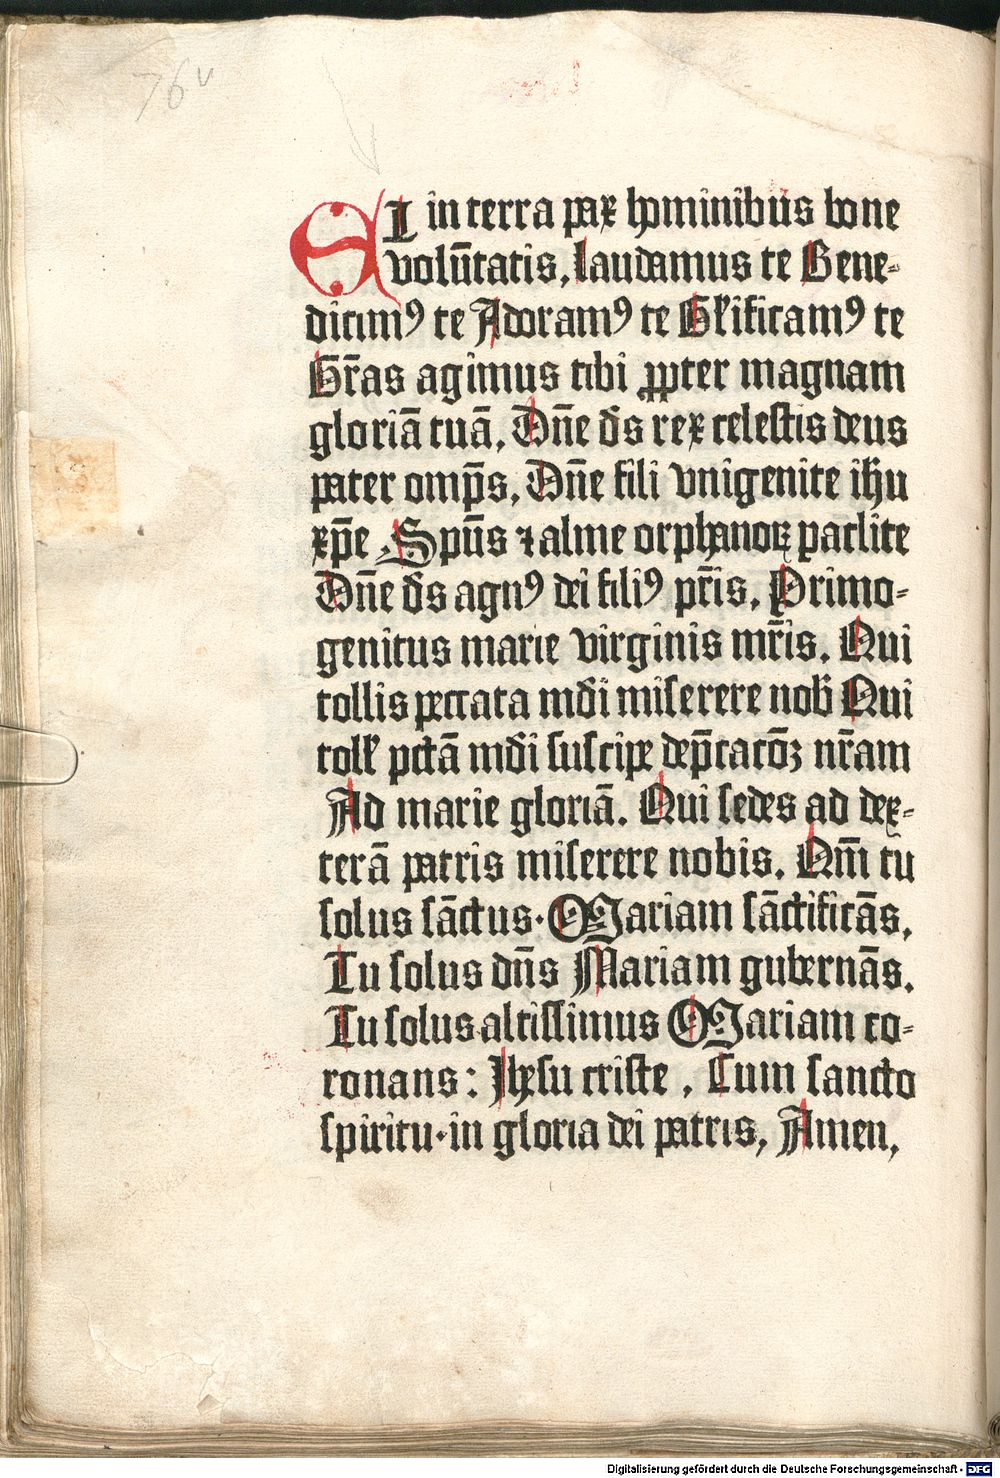 76v
ET in terra pax hominibus bone
volūtatis, laudamus te Bene-
dicimꝰ te Adoramꝰ te Gl'ificamꝰ te
Gr̄as agimus tibi ꝓpter magnam
gloriā tuā, Dn̄e ds̄ rex celestis deus
pater omp̄s, Dn̄e fili vnigenite ih̄u
xp̄e, Spūs ⁊ alme orphanoꝝ par̄clite
Dn̄e ds̄ agnꝰ dei filiꝰ pr̄is, Primo-
genitus marie virginis mr̄is. Qui
tollis peccata mūdi miserere nob̄ Qui
toll' pctā mūdi suscipe dep̄catōꝫ nr̄am
Ad marie gloriā. Qui sedes ad dex-
terā patris miserere nobis. Qm̄ tu
solus sāctus· Mariam sāctificās,
Tu solus dn̄s Mariam gubernās.
Tu solus altissimus Mariam co-
ronans: Jhesu criste, Cum sancto
spiritu· in gloria dei patris, Amen,
Digitalisierung gefördert durch die Deutsche Forschungsgemeinschaft - DFG